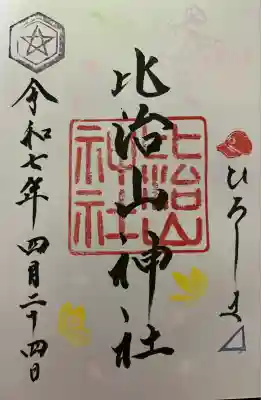 ひろしま
比治山神社
比治山
神社
令和七年 四月二十四日